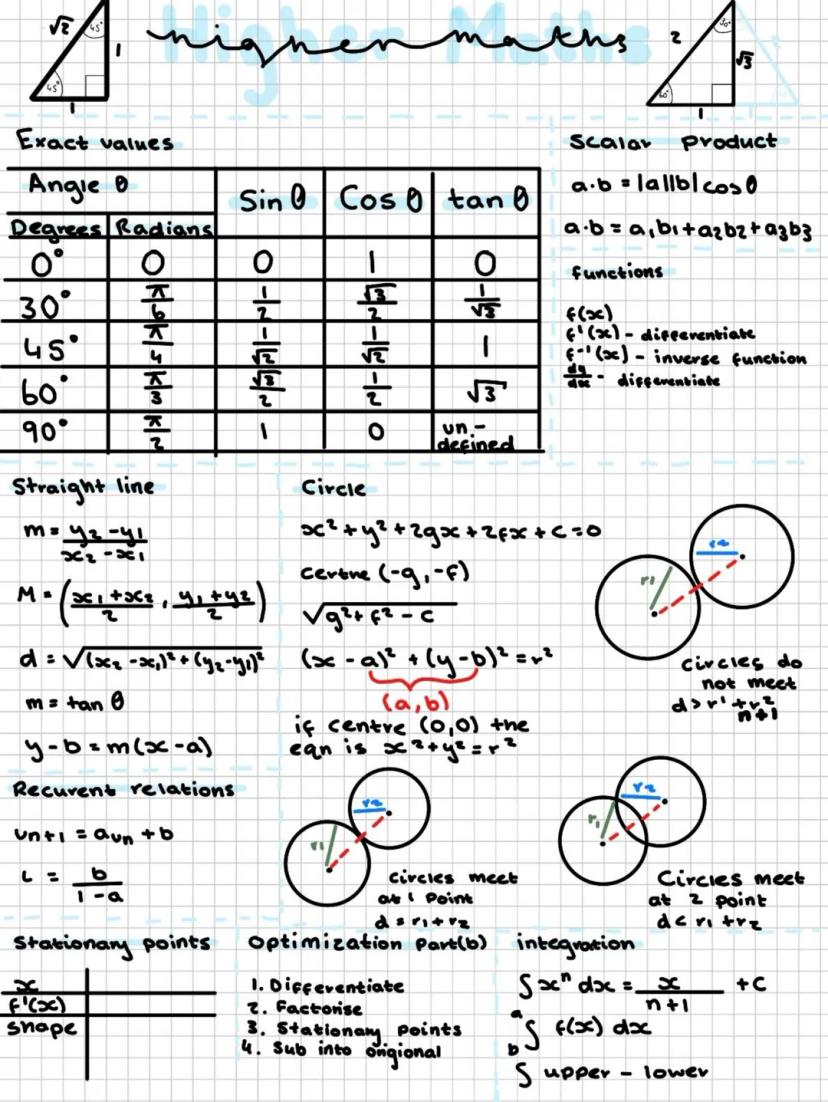 Higher Maths
√2
45°
1
45°
1
2
30°
√3
60°
1
Exact values
Angle θ
Sin θ
Cos θ
tan θ
Degrees
Radians
0° 0 0 1 0
30° π/6 1/2 √3/2 1/√3
45° π/4 1/√2 1/√2 1
60° π/3 √3/2 1/2 √3
90° π/2 1 0 un-
defined
Scalar product
a·b = |a||b| cos θ
a·b = a₁b₁+a₂b₂+a₃b₃
functions
f(x)
f'(x) - differentiate
f⁻¹(x) - inverse function
dy/dx - differentiate
Straight line
m = y₂-y₁/x₂-x₁
M = (x₁+x₂/2, y₁+y₂/2)
d = √(x₂-x₁)²+(y₂-y₁)²
m = tan θ
y-b = m(x-a)
Circle
x²+y²+2gx+2fx+c=0
Certne (-g,-f)
√g²+f²-c
(x-a)²+(y-b)²=r²
(a,b)
if centre (0,0) the
eqn is x²+y²=r²
r1
r2
Circles do
not meet
d>r1+r2
n+1
Recurent relations
un+1 = aun + b
L = b/1-a
r1
r2
Circles meet
at 1 point
d = r1+r2
r1
r2
Circles meet
at 2 point
d < r1+r2
Stationary points
x
f'(x)
shape
Optimization Part(b)
1. Differentiate
2. Factorise
3. Stationary points
4. Sub into origional
integration
∫xⁿ dx = x/n+1 +C
a∫b f(x) dx
∫ upper - lower